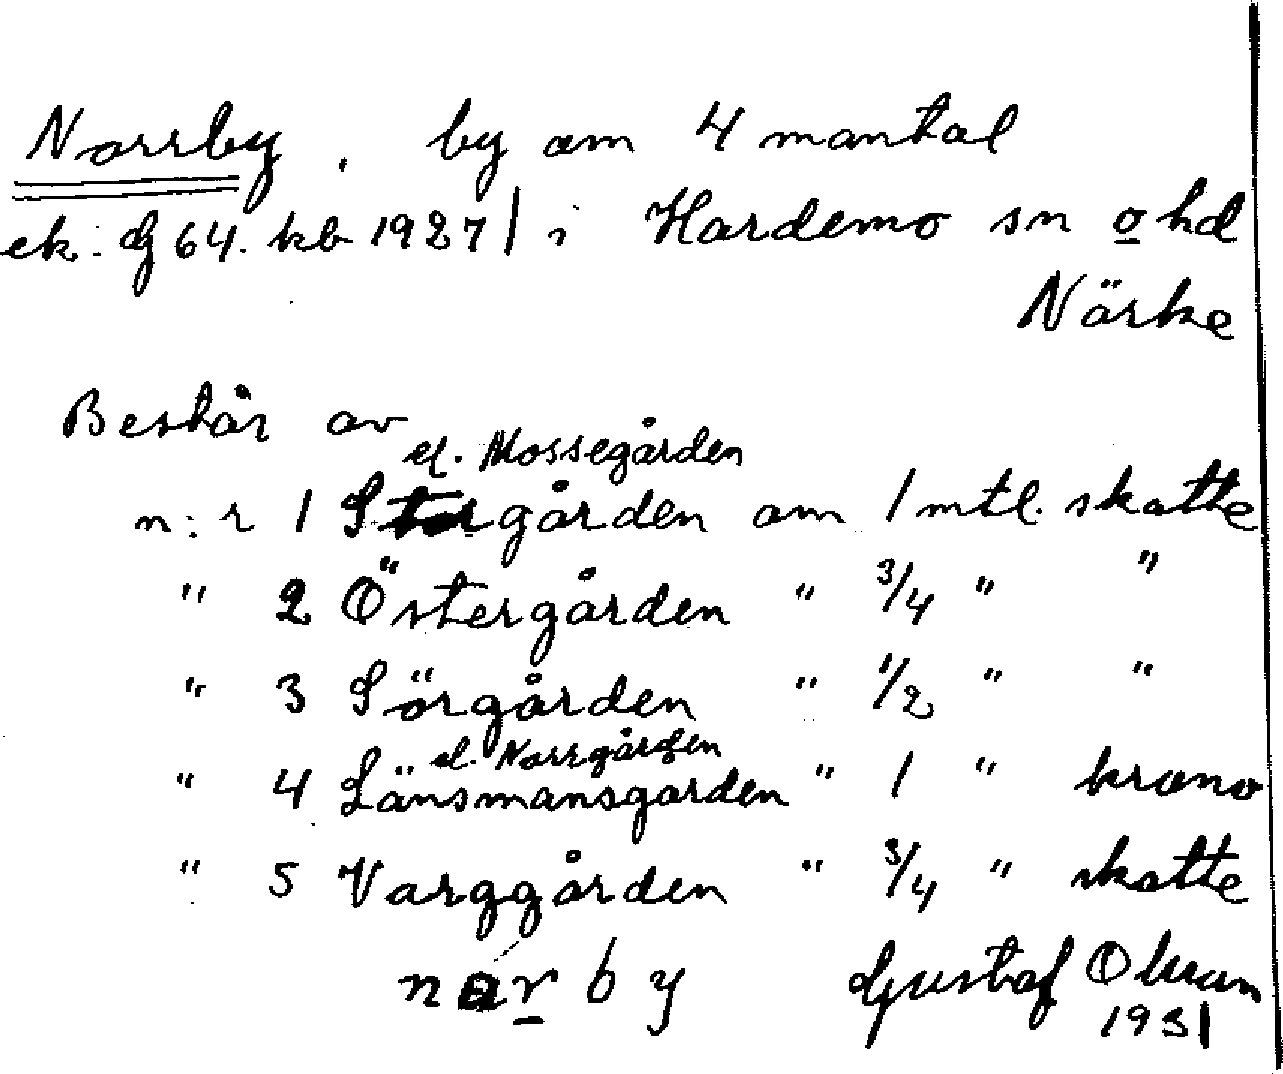 Norrby, by om 4 mantal
ek. bl 64. kb 1927/ i Hardemo sn o hd
Närke
Består av
el. Mossegården
n:r 1 Storgården om 1 mtl. skatte
" 2 Östergården " 3/4 " "
" 3 Sörgården " 1/2 " "
el. Norrgården
" 4 Länsmansgården " 1 " krono
" 5 Varggården " 3/4 " skatte
narby Gustaf
1931